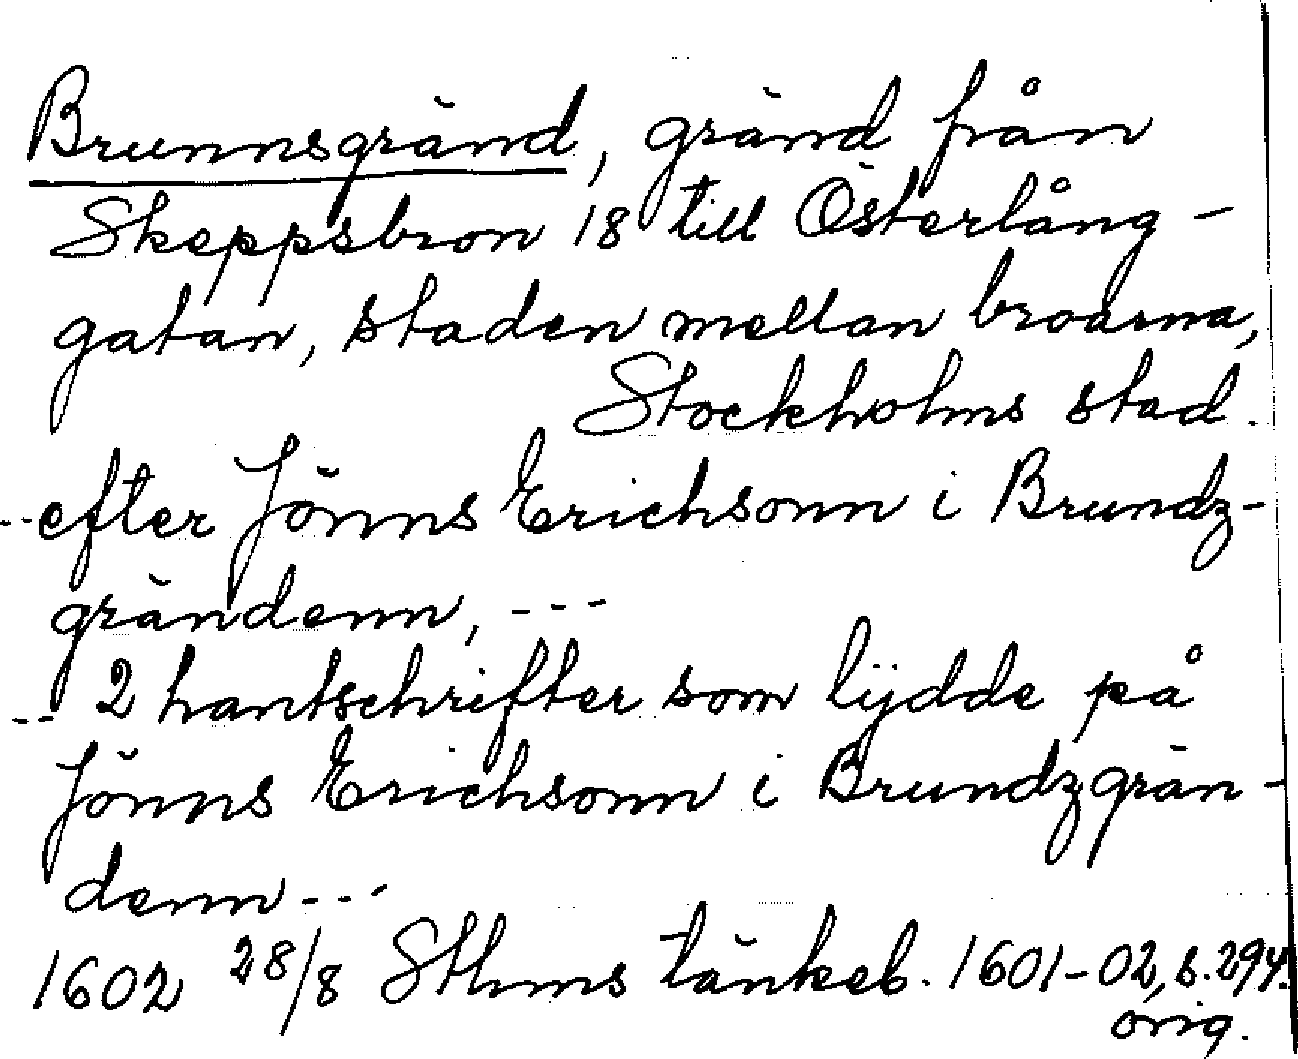 Brunnsgränd, gränd från
Skeppsbron 18 till Österlång-
gatan, staden mellan broarna,
Stockholms stad.
--efter Jönns Erichsonn i Brundz-
grändenn, ---
-- 2 hantschrifter som lÿdde på
Jönns Erichsonn i Brundzgrän-
denn ---
1602 28/8 Sthms tänkeb. 1601-02, s. 294.
orig.